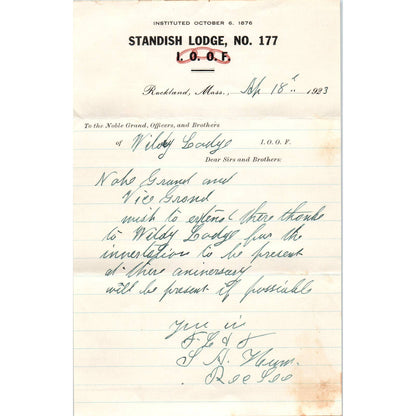 INSTITUTED OCTOBER 6, 1876
STANDISH LODGE, NO. 177
I. O. O. F.
Rockland, Mass., Ap 18" 1923
To the Noble Grand, Officers, and Brothers
of Wildy Lodge I. O. O. F.
Dear Sirs and Brothers:
Noble Grand and
Vice Grand
wish to extend there thanks
to Wildy Lodge for the
invertation to be present
at there aniversary
will be present if possiable
Your in
F L & T
S. A.
Rec Sec